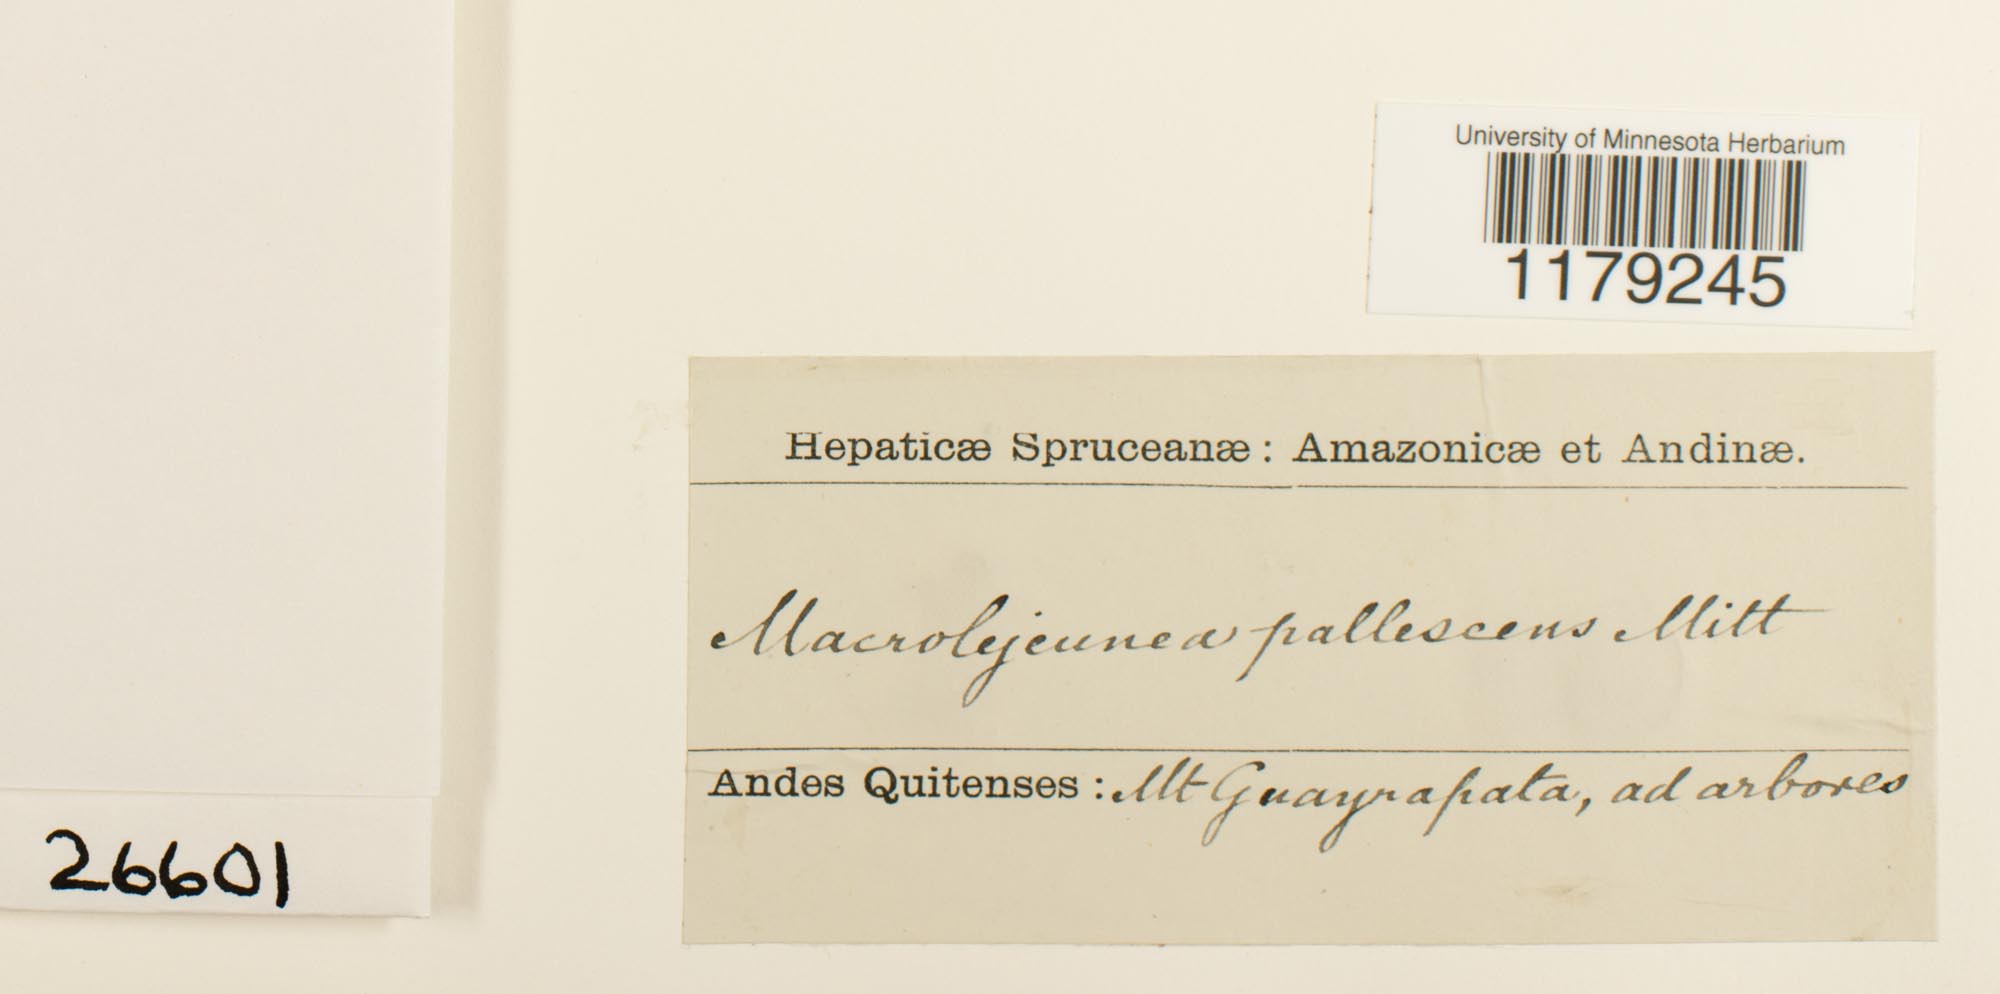 University of Minnesota Herbarium
1179245
Hepaticæ Spruceanæ: Amazonicæ et Andinæ.
Macrolejeunea pallescens Mitt
Andes Quitenses: Mt Guayrapata, ad arbores
26601